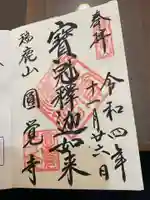 奉拝
令和四年
十一月廿六日
寶冠釋迦如来
瑞鹿山
圓覺寺